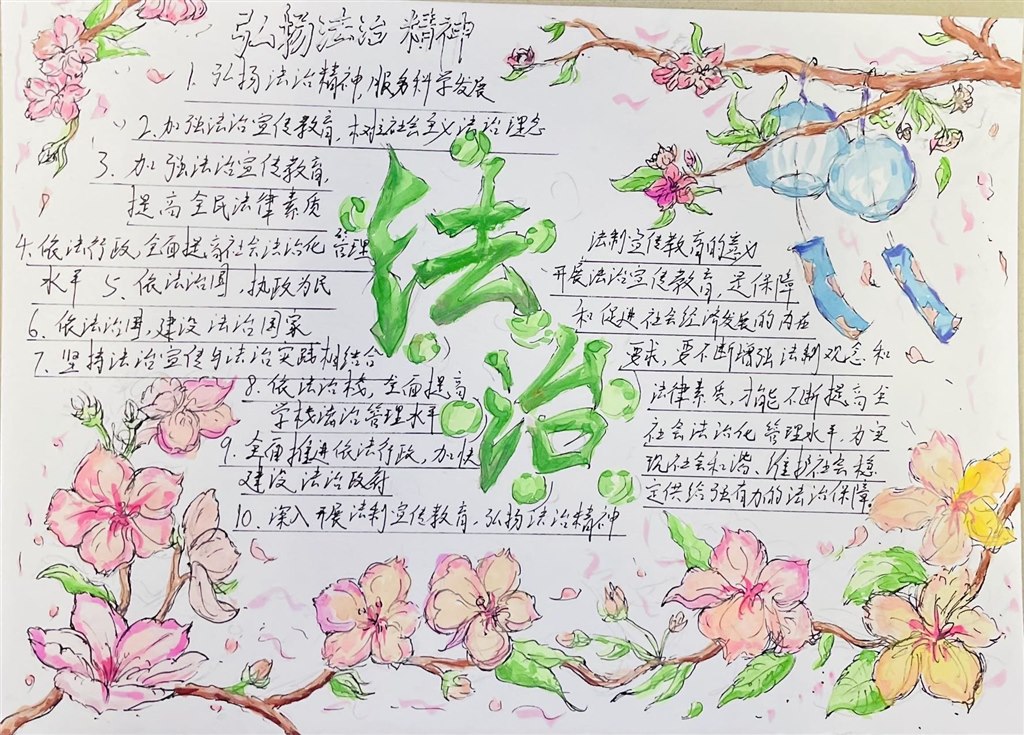 弘扬法治精神
1. 弘扬法治精神,服务科学发展
2. 加强法治宣传教育,树立社会主义法治理念
3. 加强法治宣传教育,
提高全民法律素质
4. 依法行政,全面提高社会法治化管理
水平 5、依法治国,执政为民
6. 依法治国,建设法治国家
7. 坚持法治宣传与法治实践相结合
8. 依法治校,全面提高
学校法治管理水平
9. 全面推进依法行政,加快
建设法治政府
10. 深入开展法制宣传教育,弘扬法治精神
法治
法制宣传教育的意义
开展法治宣传教育,是保障
和促进社会经济发展的内在
要求,要不断增强法制观念和
法律素质,才能不断提高全
社会法治化管理水平,为实
现社会和谐、维护社会稳
定供给强有力的法治保障